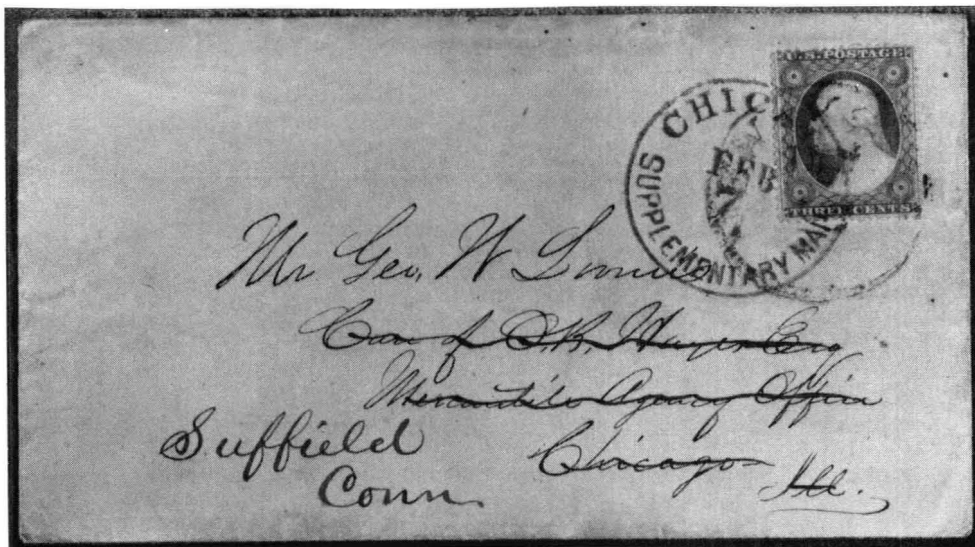 U.S. POSTAGE
THREE CENTS
CHIC
FEB
SUPPLEMENTARY MAI
Mr Geo. W Loomis
Care of O.R. Hayes Esq
Mercantile Agency Office
Chicago
Ill.
Suffield
Conn.